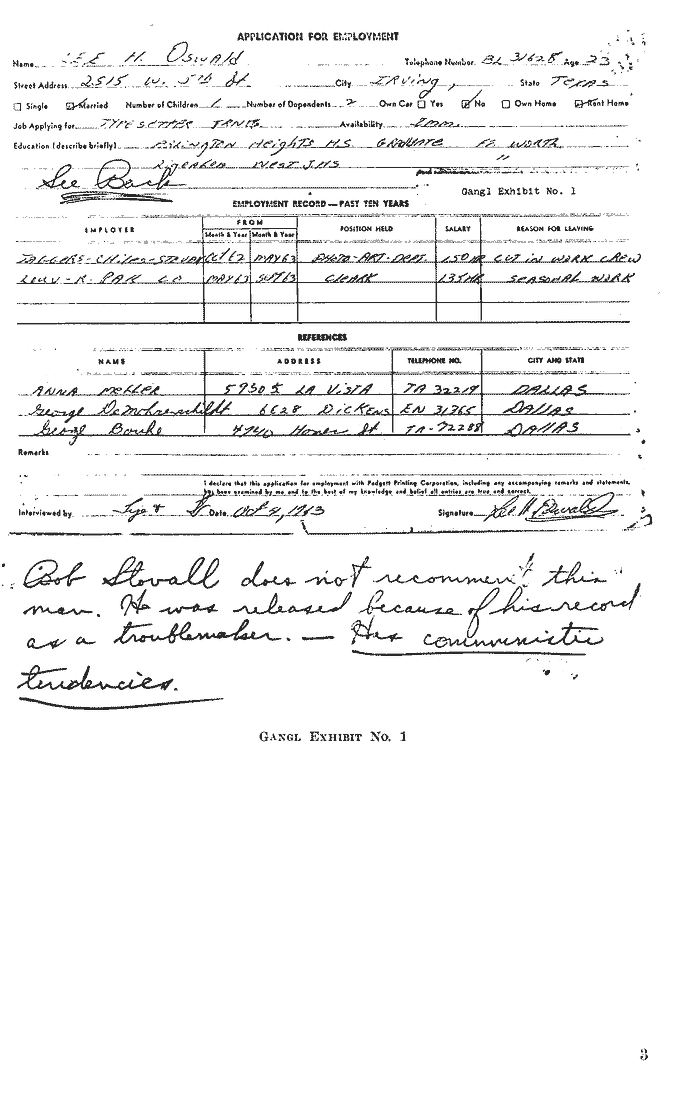 APPLICATION FOR EMPLOYMENT
Name LEE H. Oswald Telephone Number BL 31628 Age 23
Street Address 2515 W. 5th St City IRVING, State TEXAS
Single Married Number of Children 1 Number of Dependents 2 Own Car Yes No Own Home Rent Home
Job Applying for TYPESETTER Availability
Education (describe briefly) Heights H.S. GRADUATE Ft. WORTH
West J.H.S "
See Back
Gangl Exhibit No. 1
EMPLOYMENT RECORD—PAST TEN YEARS
EMPLOYER FROM POSITION HELD SALARY REASON FOR LEAVING
Month & Year Month & Year
JAGGERS-CHILES-STOVAL Oct 62 MAY 63 PHOTO-ART-DEPT. 150 HR CUT IN WORK CREW
MAY 63 CLEARK 135 HR SEASONAL WORK
REFERENCES
NAME ADDRESS TELEPHONE NO. CITY AND STATE
ANNA MELLER 5930 LA VISTA TA 32219 DALLAS
George DeMohrenschildt 6628 DICKENS EN 31365 DALLAS
4740 TA-72288 DALLAS
Remarks
I declare that this application for employment with Padgett Printing Corporation, including any accompanying remarks and statements,
has been examined by me and to the best of my knowledge and belief all entries are true and correct.
Interviewed by Date Oct 4, 1963 Signature Lee H Oswald
Bob Stovall does not recommend this
man. He was released because of his record
as a troublemaker. — Has communistic
tendencies.
GANGL EXHIBIT NO. 1
3